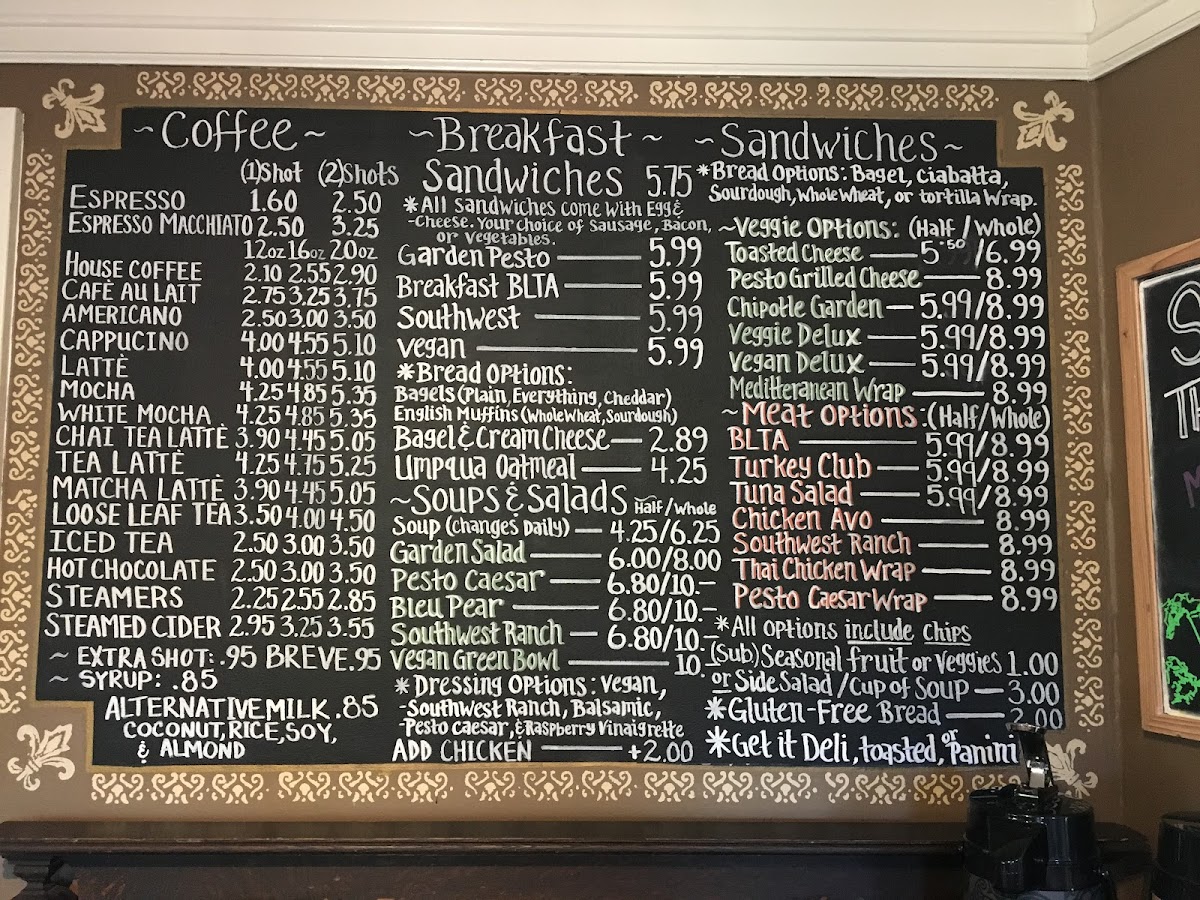 ~Coffee~
(1)Shot (2)Shots
ESPRESSO 1.60 2.50
ESPRESSO MACCHIATO 2.50 3.25
12oz 16oz 20oz
HOUSE COFFEE 2.10 2.55 2.90
CAFÈ AU LAIT 2.75 3.25 3.75
AMERICANO 2.50 3.00 3.50
CAPPUCINO 4.00 4.55 5.10
LATTÈ 4.00 4.55 5.10
MOCHA 4.25 4.85 5.35
WHITE MOCHA 4.25 4.85 5.35
CHAI TEA LATTÈ 3.90 4.45 5.05
TEA LATTÈ 4.25 4.75 5.25
MATCHA LATTÈ 3.90 4.45 5.05
LOOSE LEAF TEA 3.50 4.00 4.50
ICED TEA 2.50 3.00 3.50
HOT CHOCOLATE 2.50 3.00 3.50
STEAMERS 2.25 2.55 2.85
STEAMED CIDER 2.95 3.25 3.55
~ EXTRA SHOT: .95 BREVE .95
~ SYRUP: .85
ALTERNATIVE MILK .85
COCONUT, RICE, SOY,
& ALMOND
~Breakfast~
Sandwiches 5.75
*All Sandwiches Come With Egg &
-Cheese. Your Choice of Sausage, Bacon,
or Vegetables.
Garden Pesto — 5.99
Breakfast BLTA — 5.99
Southwest — 5.99
vegan — 5.99
*Bread Options:
Bagels (Plain, Everything, Cheddar)
English Muffins (Whole Wheat, Sourdough)
Bagel & Cream Cheese — 2.89
Umpqua Oatmeal — 4.25
~Soups & Salads Half/Whole
Soup (Changes Daily) — 4.25/6.25
Garden Salad — 6.00/8.00
Pesto Caesar — 6.80/10.-
Bleu Pear — 6.80/10.-
Southwest Ranch — 6.80/10.-
Vegan Green Bowl — 10.-
*Dressing Options: Vegan,
-Southwest Ranch, Balsamic,
-Pesto Caesar, & Raspberry Vinaigrette
ADD CHICKEN — +2.00
~Sandwiches~
*Bread Options: Bagel, Ciabatta,
Sourdough, Whole Wheat, or Tortilla Wrap.
~Veggie Options: (Half/Whole)
Toasted Cheese — 5.50/6.99
Pesto Grilled Cheese — 8.99
Chipotle Garden — 5.99/8.99
Veggie Delux — 5.99/8.99
Vegan Delux — 5.99/8.99
Meditteranean Wrap — 8.99
~Meat Options: (Half/Whole)
BLTA — 5.99/8.99
Turkey Club — 5.99/8.99
Tuna Salad — 5.99/8.99
Chicken Avo — 8.99
Southwest Ranch — 8.99
Thai Chicken Wrap — 8.99
Pesto Caesar Wrap — 8.99
*All Options include Chips
(Sub) Seasonal fruit or Veggies 1.00
or Side Salad/Cup of Soup — 3.00
*Gluten-Free Bread — 2.00
*Get it Deli, toasted, or Panini